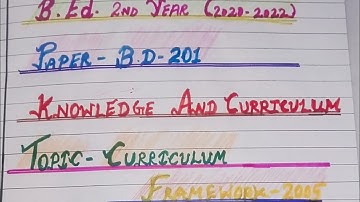 B.Ed. 2nd Year (2020-2022)
Paper - B.D-201
Knowledge And Curriculum
Topic - Curriculum
Framework-2005